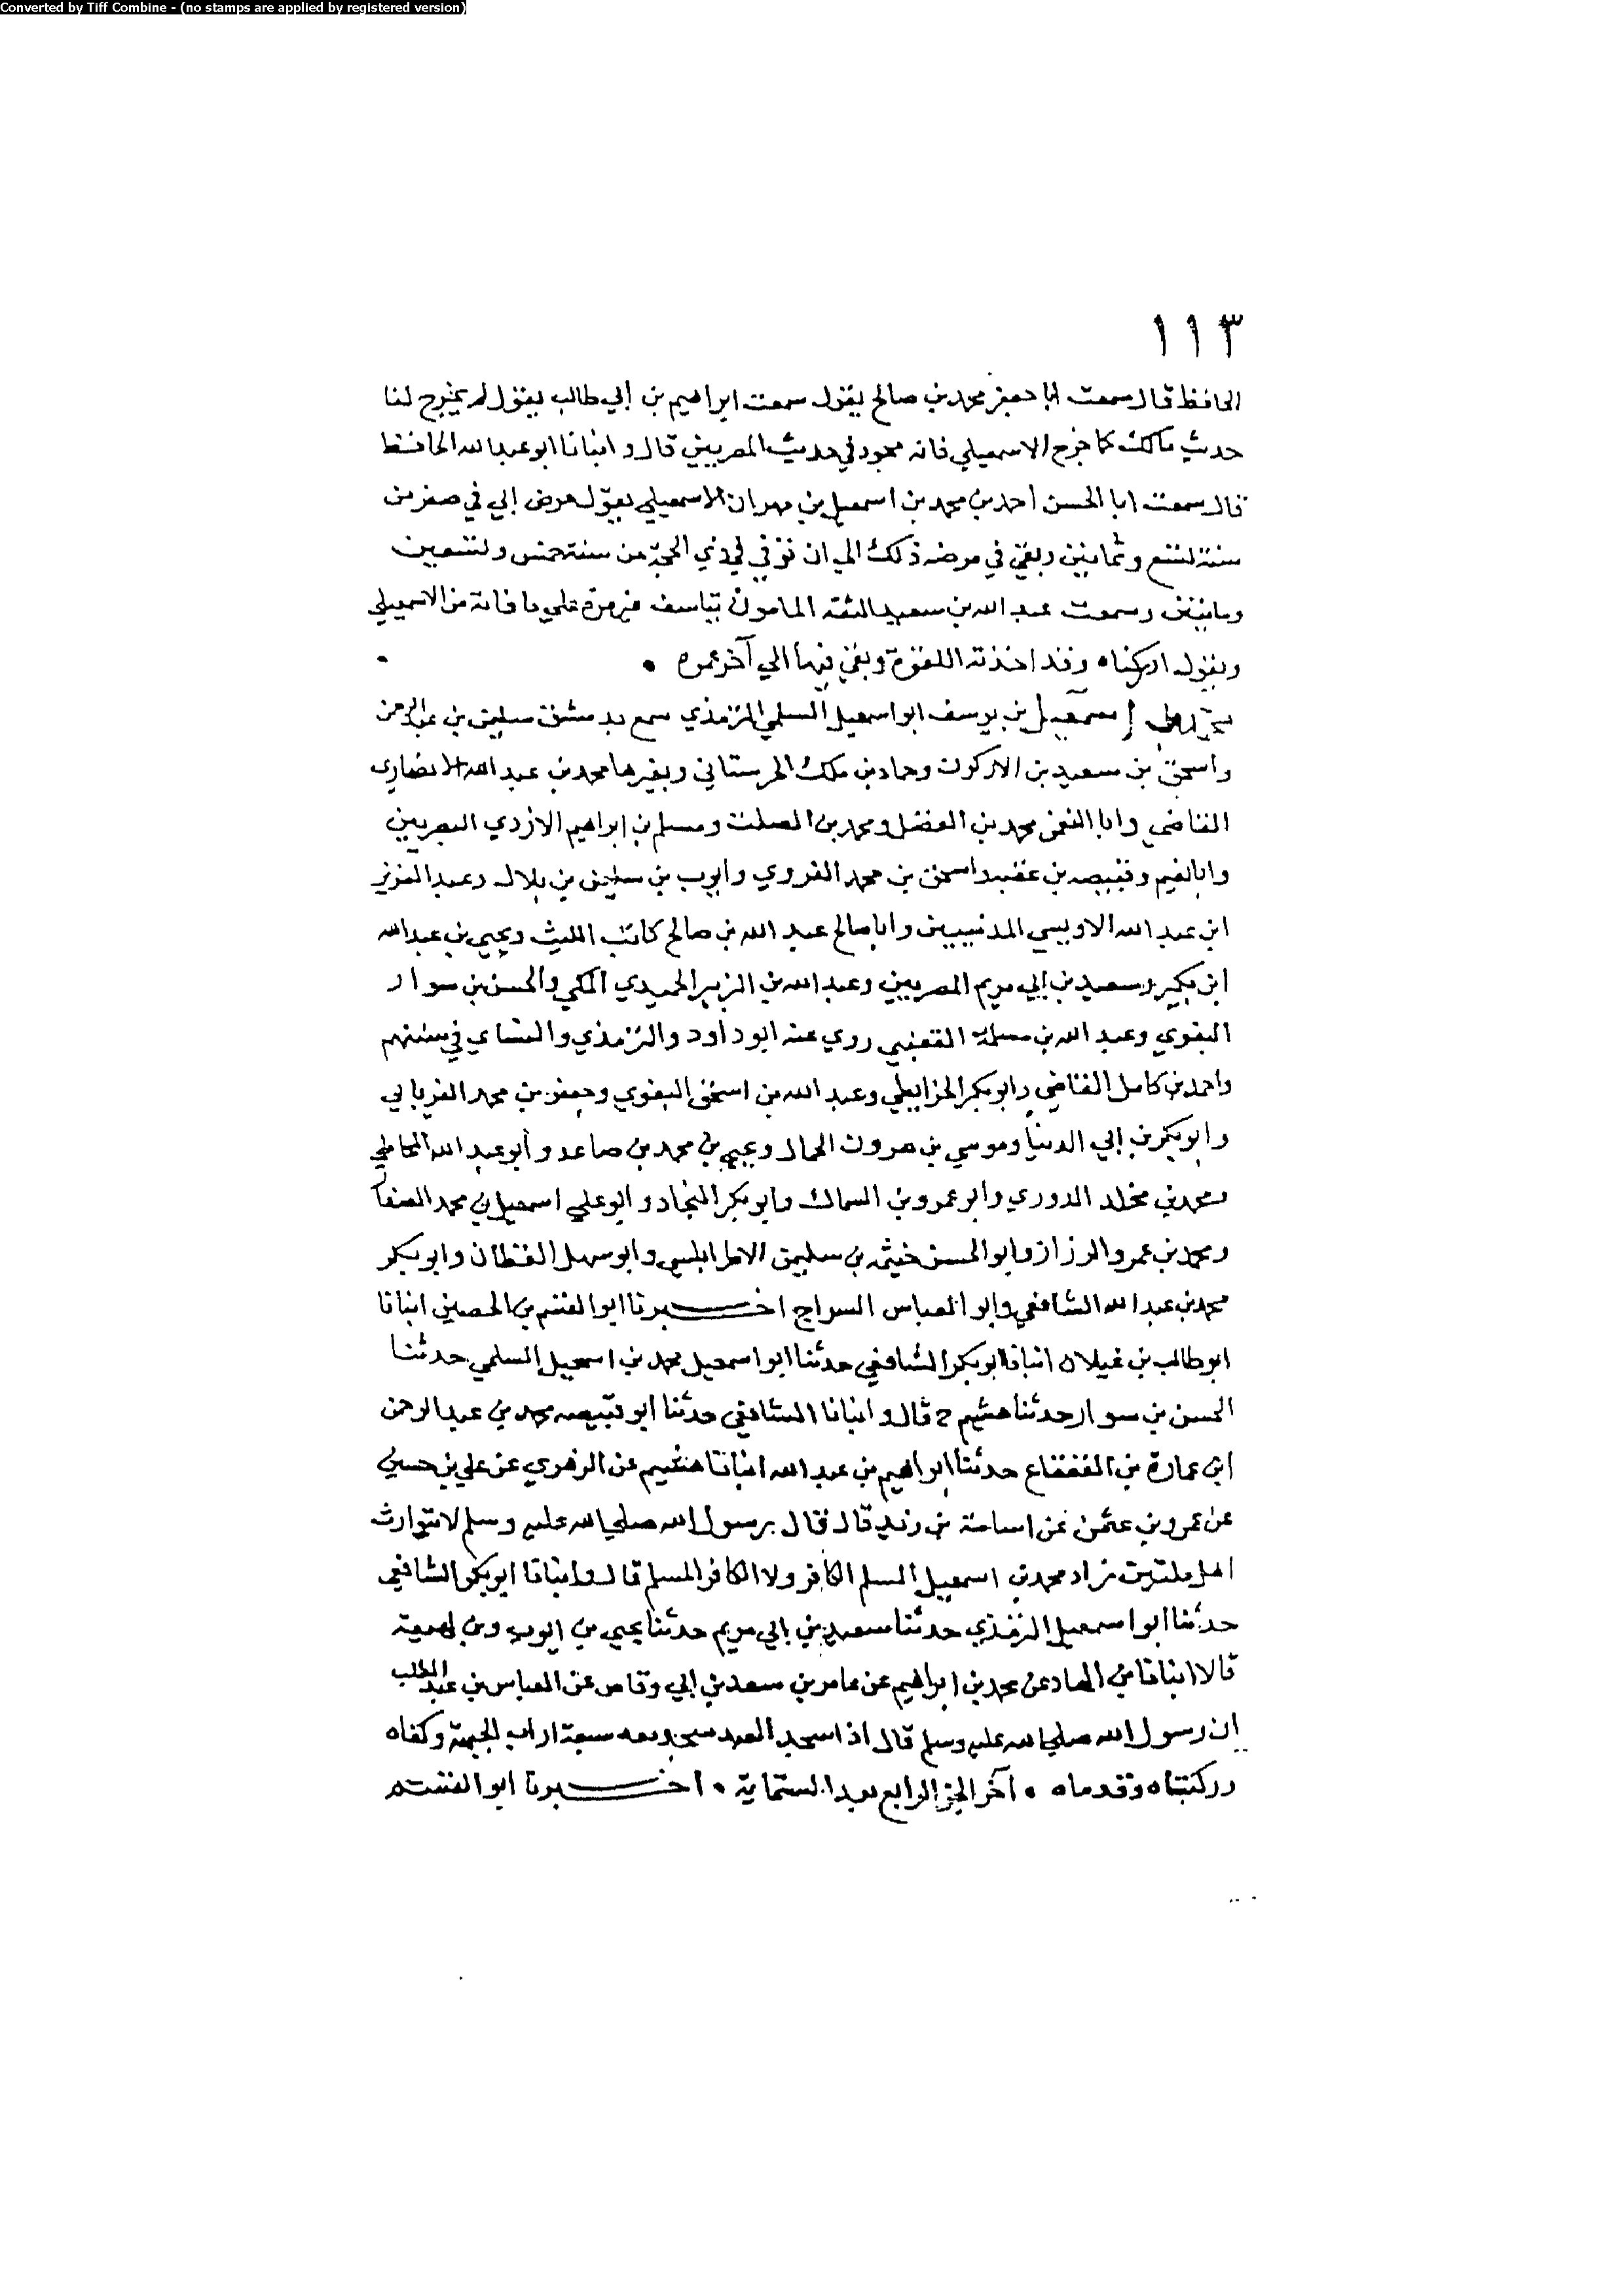 Converted by Tiff Combine - (no stamps are applied by registered version)
١١٣
الحافظ قال سمعت ابا جعفر محمد بن صالح يقول سمعت ابراهيم بن ابي طالب يقول لم يخرج لنا
حديث مالك كما خرج الاسمعيلي فانه مجود في حديث المصريين قال وانبانا ابو عبد الله الحافظ
قال سمعت ابا الحسن احمد بن محمد بن اسمعيل بن مهران الاسمعيلي يقول مرض ابي في صفر من
سنة تسع وثمانين وبقي في مرضه ذلك الي ان توفي في ذي الحجة من سنة خمس وتسعين
وماتيتن وسمعت عبد الله بن سعيد الثقة المامون يتاسف غير مرة علي ما فاته من الاسمعيلي
ويقول ادركناه وقد اخذته اللقوة وبقي فيها الي آخر عمره •
محمد بن إسمعيل بن يوسف ابو اسمعيل السلمي الترمذي سمع بدمشق سليمن بن عبد الرحمن
واسحق بن سعيد بن الاركون وحماد بن ملك الحرستاني وبغيرها محمد بن عبد الله الانصاري
القاضي وابا النعمن محمد بن الفضل ومحمد بن الصلت ومسلم بن ابراهيم الازدي البصريين
وابا نعيم وقبيصه بن عقبه واسحق بن محمد الفروي وايوب بن سليمن بن بلال وعبد العزيز
ابن عبد الله الاويسي المدنيين وابا صالح عبد الله بن صالح كاتب الليث ويحيي بن عبد الله
ابن بكير وسعيد بن ابي مريم المصريين وعبد الله بن الزبير الحميدي المكي والحسن بن سوار
البغوي وعبد الله بن مسلمة القعنبي روي عنه ابو داود والترمذي والنساي في سننهم
واحمد بن كامل القاضي وابو بكر الخرايطي وعبد الله بن اسحق البغوي وجعفر بن محمد الفريابي
وابو بكر بن ابي الدنيا وموسي بن هرون الحمال ويحيي بن محمد بن صاعد وأبو عبد الله المحاملي
ومحمد بن مخلد الدوري وابو عمرو بن السماك وابو بكر النجاد وابو علي اسمعيل بن محمد الصفا
ومحمد بن عمرو الرزاز وابو الحسن خيثمه بن سليمن الاطرابلسي وابو سهل القطان وابو بكر
محمد بن عبد الله الشافعي وابو العباس السراج اخبرنا ابو القسم بن الحصين انبانا
ابو طالب بن غيلان انبانا ابو بكر الشافعي حدثنا ابو اسمعيل محمد بن اسمعيل السلمي حدثنا
الحسن بن سوار حدثنا هشيم ح قال وانبانا الشافعي حدثنا ابو قبيصه محمد بن عبد الرحمن
ابن عمارة بن القعقاع حدثنا ابراهيم بن عبد الله انبانا هشيم عن الزهري عن علي بن حسين
عن عمرو بن عثمن عن اسامة بن زيد قال قال رسول الله صلي الله عليه وسلم لا يتوارث
اهل ملتين زاد محمد بن اسمعيل المسلم الكافر ولا الكافر المسلم قال وانبانا ابو بكر الشافعي
حدثنا ابو اسمعيل الترمذي حدثنا سعيد بن ابي مريم حدثنا يحيي بن ايوب وبن لهيعة
قالا انبانا بن الهاد عن محمد بن ابراهيم عن عامر بن سعد بن ابي وقاص عن العباس بن عبد المطلب
ان رسول الله صلي الله عليه وسلم قال اذا سجد العبد سجد معه سبعة اراب الجبهة وكفاه
وركبتاه وقدماه • آخر الجز الرابع بعد الستماية • اخبرنا ابو القسم